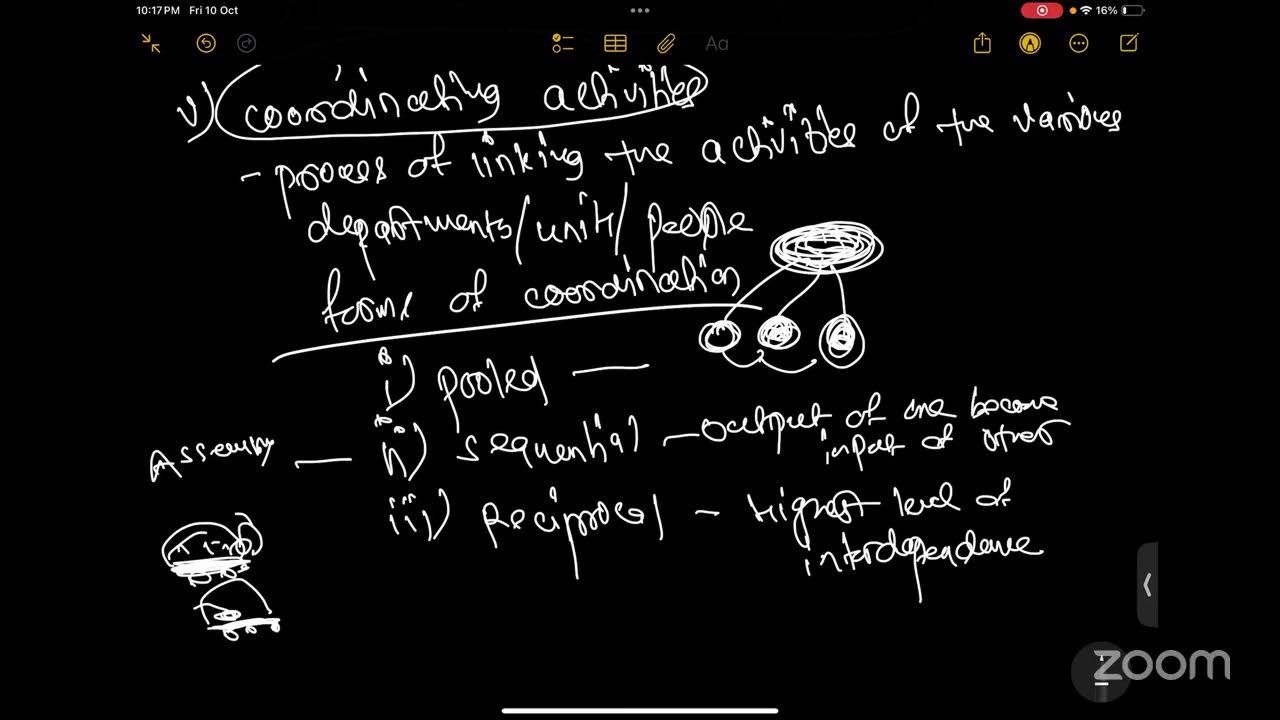 10:17 PM Fri 10 Oct
16%
Aa
v) coordinating activities
- process of linking the activities of the various
departments/units/people
forms of coordination
i) pooled —
Assembly — ii) sequential — output of one become
input of other
iii) Reciprocal - Highest level of
interdependence
zoom